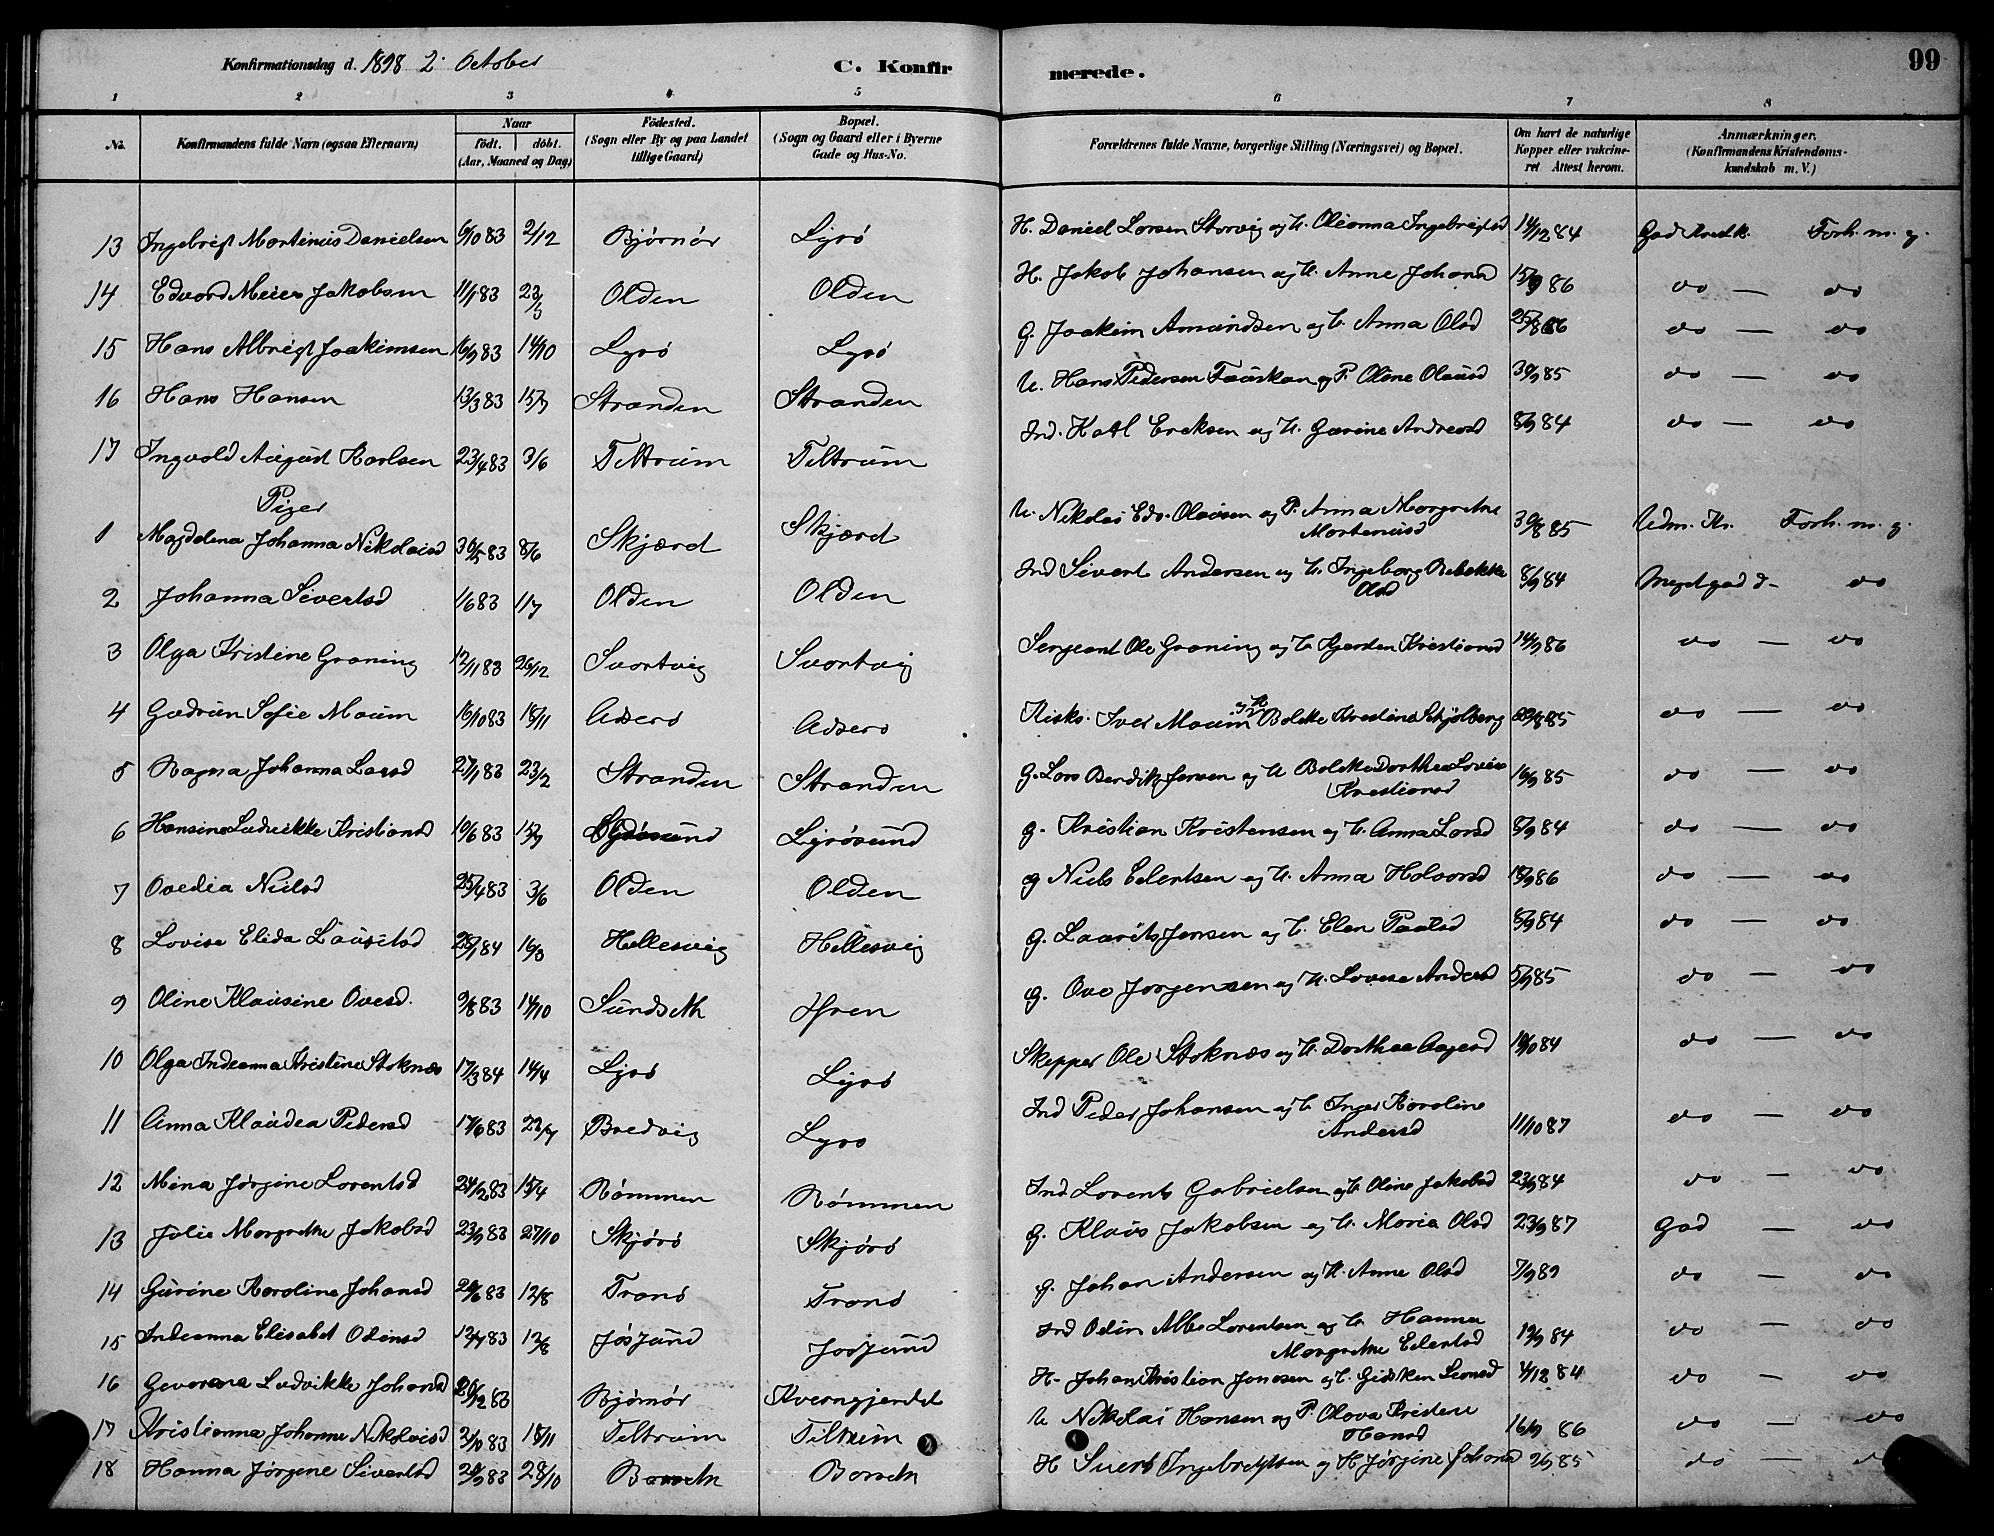 Konfirmationsdag d. 1898 2. October C. Konfir merede. 99
1 2 3 4 5 6 7 8
No. Konfirmandens fulde Navn (ogsaa Efternavn) Naar födt. döbt. (Aar, Maaned og Dag) Födested. (Sogn eller By og paa Landet tillige Gaard) Bopæl. (Sogn og Gaard eller i Byerne Gade og Hus-No. Forældrenes fulde Navne, borgerlige Stilling (Næringsvei) og Bopæl. Om havt de naturlige Kopper eller vakcineret Attest herom. Anmærkninger. (Konfirmandens Kristendomskundskab m. V.)
13 Ingebrigt Martinus Danielsen 6/10 83 2/12 Bjørnør Lysø H. Daniel Larsen Storvig og H. Oleanna Ingebrigtsd 14/12 84 God Kredk. Forh. m. g.
14 Edvard Meier Jakobsen 11/1 83 23/3 Olden Olden H. Jakob Johansen og H. Anne Johansd 15/9 86 do — do
15 Hans Albrigt Joakimsen 16/9 83 14/10 Lysø Lysø G. Joakim Amundsen og H. Anna Olsd 25/8 86 do — do
16 Hans Hansen 13/3 83 15/7 Stranden Stranden U. Hans Pedersen og P. Oline Olausd 30/9 85 do — do
17 Ingvald August Karlsen 23/4 83 3/6 Teltrum Teltrum Ind. Karl Eriksen og H. Gurine Andreasd 8/9 84 do — do
Piger
1 Magdalena Johanna Nikolaisd 30/5 83 8/6 Skjærd Skjærd U. Nikolai Edv. Olausen og P. Anna Margrethe Martenusd 30/8 85 Udm. Kr. Forh. m. g.
2 Johanna Sivertsd 1/6 83 1/7 Olden Olden Ind Sivert Andersen og H. Ingeborg Rebekka Olsd 8/9 84 Megetgod d- do
3 Olga Kristine Graning 12/11 83 26/12 Svartvig Svartvig Sergeant Ole Graning og H. Kjersten Kristiansd 14/9 86 do — do
4 Gudrun Sofie Maum 16/10 83 18/11 Adserø Adserø Kirks. Iver Maum og H. Bolette Kristine Schjølberg 8/85 do — do
5 Ragna Johanna Larsd 27/1 83 23/2 Stranden Stranden G. Lars Bendik Jensen og H Boletta Dorthea Lovise Kristiansd 16/9 85 do — do
6 Hansine Ludvikke Kristiansd 10/6 83 15/7 Lysøsund Lysøsund G. Kristian Kristensen og H. Anna Larsd 8/9 84 do — do
7 Ovedia Nielsd 25/4 83 3/6 Olden Olden G Niels Eilertsen og H. Anna Halvorsd 18/9 86 do — do
8 Lovise Elida Lauritsd 28/1 84 16/3 Hellesvig Hellesvig G. Laurits Jensen og H. Elen Paulsd 8/9 84 do — do
9 Oline Klausine Ovesd. 9/8 83 14/10 Sundseth Hren G. Ove Jørgensen og H. Lovise Andersd 5/9 85 do — do
10 Olga Indianna Kristine Stoknæs 17/3 84 14/4 Lysø Lysø Skipper Ole Stoknæs og H. Dorthea Aagesd 14/10 84 do — do
11 Anna Klaudea Pedersd 17/6 83 22/7 Bredvig Lysø Ind Peder Johansen og H. Inger Karoline Andersd 11/10 87 do — do
12 Mina Jørgine Lorentsd 24/2 83 15/4 Rømmen Rømmen Ind Lorents Gabrielsen og H. Oline Jakobsd 23/9 84 do — do
13 Julie Margrethe Jakobsd 23/9 83 27/10 Skjørø Skjørø G. Klaus Jakobsen og H. Maria Olsd 23/9 87 God — do
14 Gurine Karoline Johansd 20/6 83 12/8 Tranø Tranø G. Johan Andersen og H. Anne Olsd 7/9 89 do — do
15 Indianna Elisabet Odinsd 12/7 83 12/8 Jøssund Jøssund Ind Odin Alb. Lorentsen og H. Hanna Margrethe Eilertsd 19/9 84 do — do
16 Ludvikke Johansd 20/12 83 Bjørnør Kverngjerdet H. Johan Kristian Jonsen og H. Gidsken Simonsd 4/12 84 do — do
17 Kristianna Johanne Nikolaisd 2/10 83 18/11 Teltrum Teltrum U Nikolai Hansen og P. Olava Kristine Hansd 16/9 86 do — do
18 Hanna Jørgine Sivertsd 20/9 83 28/10 H Sivert Ingebrigtsen og H Jørgine Johansd 2/9 85 do — do